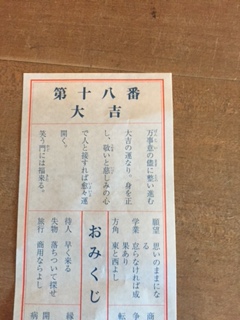 第十八番
大吉
万事意の儘に整い進む
大吉の運なり。身を正
し、敬いと慈しみの心
で人と接すれば愈々運
開く。
笑う門には福来る。
おみくじ
願望 思いのままにな
る
学業 怠らなければ成
果あり
方角 東と西よし
待人 早く来る
失物 落ちついて探せ
旅行 商用ならよし
商
争
転
縁
開
病